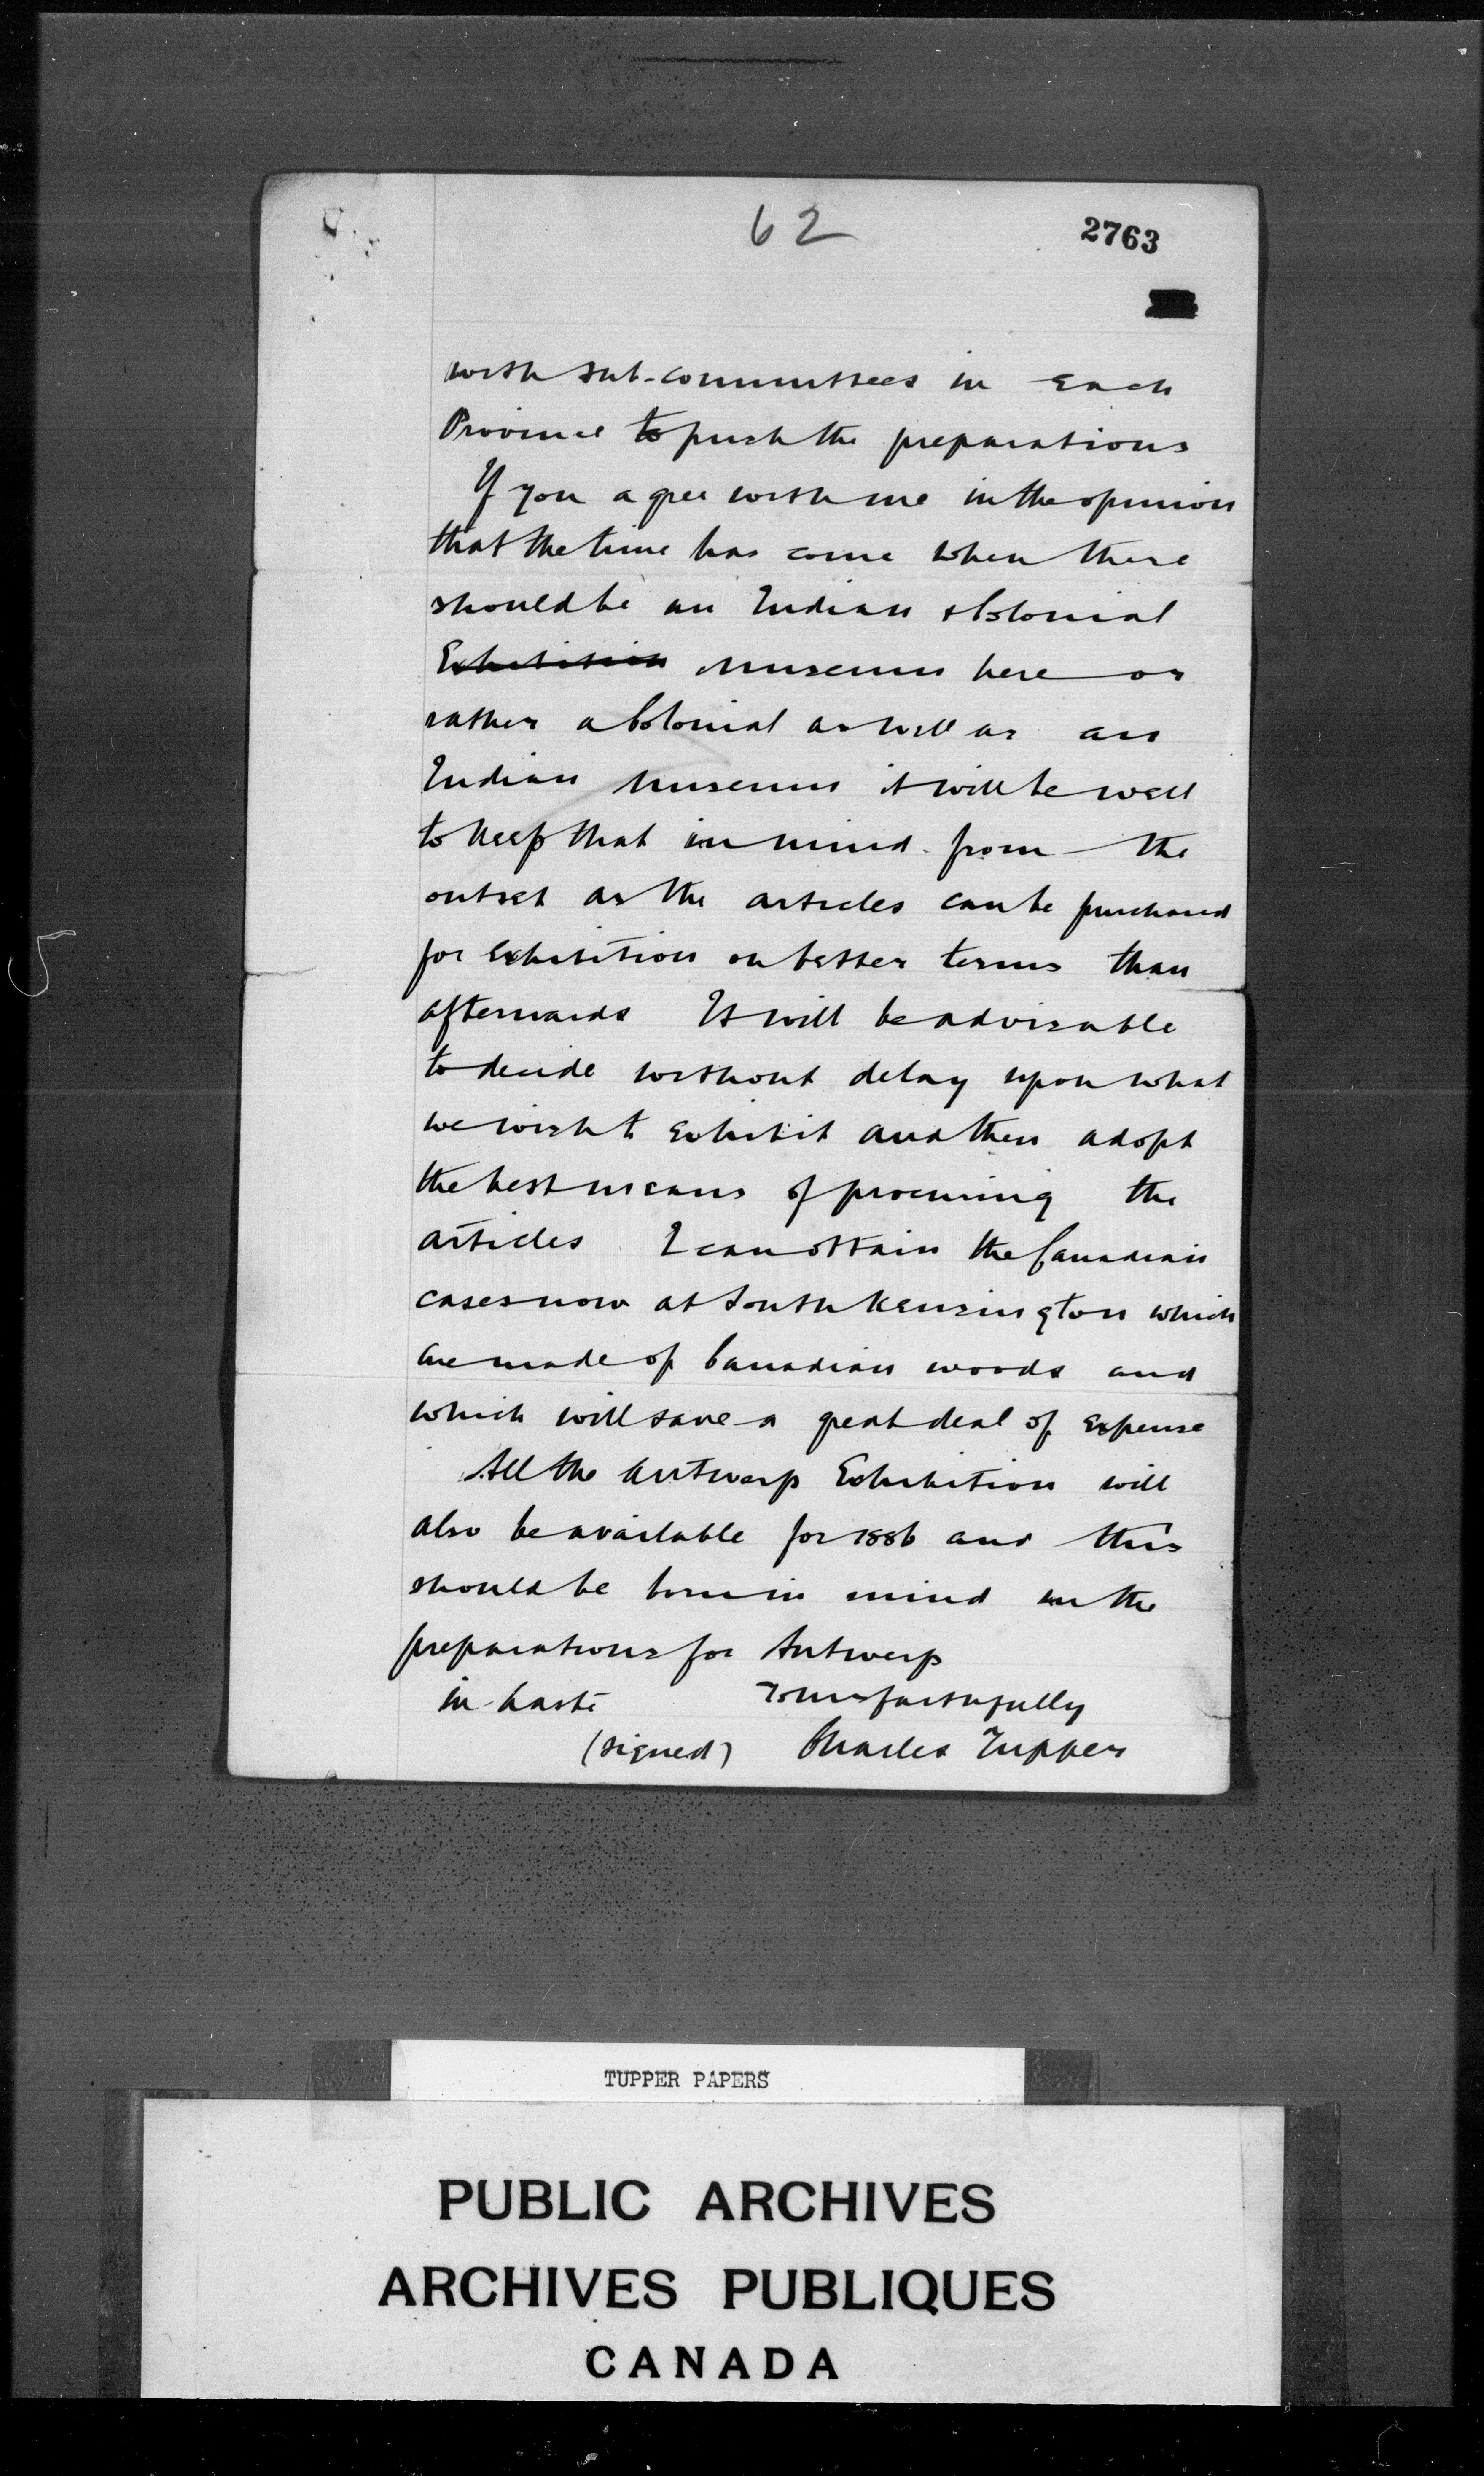 62
2763
with sub-committees in each
Province to push the preparations
If you agree with me in the opinion
that the time has come when there
should be an Indian & Colonial
Exhibition Museum here or
rather a Colonial as well as an
Indian Museum it will be well
to keep that in mind from the
outset as the articles can be purchased
for exhibition on better terms than
afterwards It will be advisable
to decide without delay upon what
we wish to exhibit and then adopt
the best means of procuring the
articles I can obtain the Canadian
cases now at South Kensington which
are made of Canadian woods and
which will save a great deal of expense
All the Antwerp Exhibition will
also be available for 1886 and this
should be borne in mind in the
preparations for Antwerp
in haste Yours faithfully
(signed) Charles Tupper
TUPPER PAPERS
PUBLIC ARCHIVES
ARCHIVES PUBLIQUES
CANADA